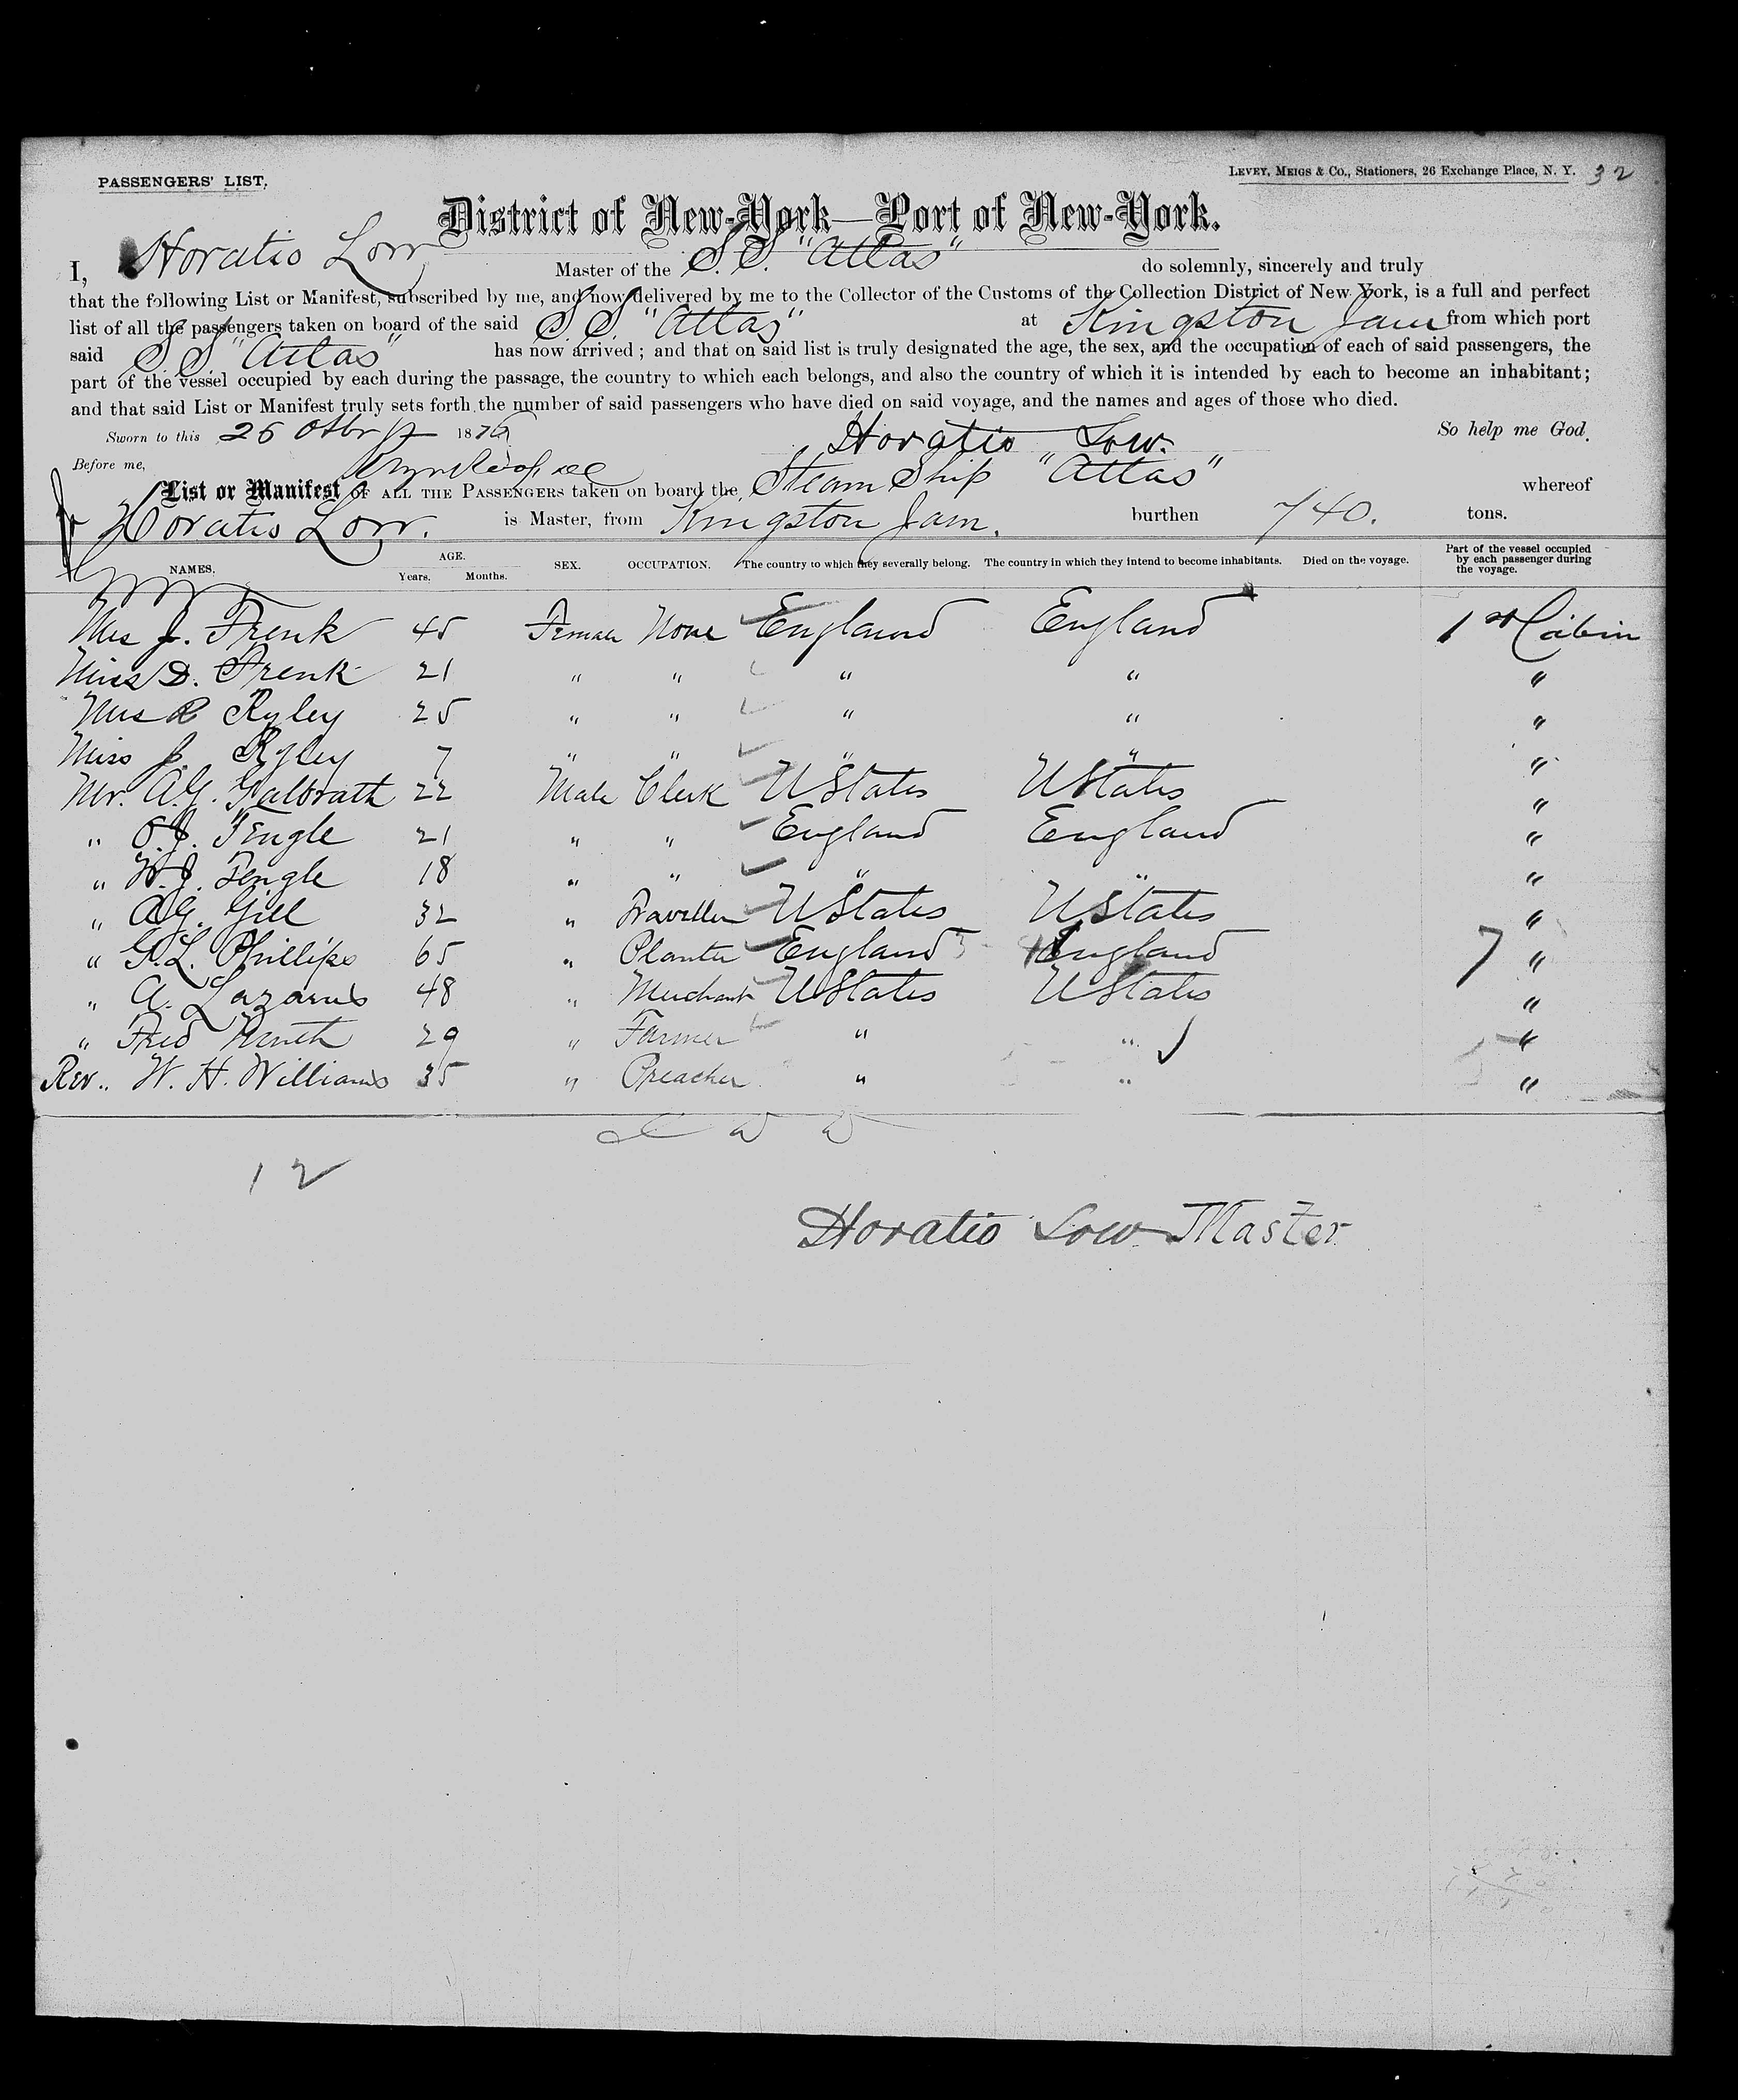 PASSENGERS' LIST.
LEVEY, MEIGS & Co., Stationers, 26 Exchange Place, N. Y. 32
District of New-York—Port of New-York.
I, Horatio Low Master of the S.S. "Atlas" do solemnly, sincerely and truly
that the following List or Manifest, subscribed by me, and now delivered by me to the Collector of the Customs of the Collection District of New York, is a full and perfect
list of all the passengers taken on board of the said S.S. "Atlas" at Kingston Jam from which port
said S S "Atlas" has now arrived; and that on said list is truly designated the age, the sex, and the occupation of each of said passengers, the
part of the vessel occupied by each during the passage, the country to which each belongs, and also the country of which it is intended by each to become an inhabitant;
and that said List or Manifest truly sets forth the number of said passengers who have died on said voyage, and the names and ages of those who died.
Sworn to this 26 187 Horatio Low. So help me God.
Before me,
List or Manifest OF ALL THE PASSENGERS taken on board the Steam Ship "Atlas" whereof
Horatio Low. is Master, from Kingston Jam. burthen 740. tons.
NAMES. AGE. Years. Months. SEX. OCCUPATION. The country to which they severally belong. The country in which they intend to become inhabitants. Died on the voyage. Part of the vessel occupied by each passenger during the voyage.
Mrs J. Frenk 45 Female None England England 1st Cabin
Miss D. Frenk 21 " " " " "
Mrs R Ryley 25 " " " " "
Miss J. Ryley 7 " " " " "
Mr. A.G. Galbrath 22 Male Clerk UStates UStates "
" O.J. Tengle 21 " " England England "
" W.J. Tengle 18 " " " " "
" A.G. Gill 32 " Traveller UStates UStates "
" G.L. Phillips 65 " Planter England England 7 "
" A. Lazarus 48 " Merchant UStates UStates "
" Fred 29 " Farmer " " "
Rev. W. H. Williams 35 " Preacher " " "
12
Horatio Low Master